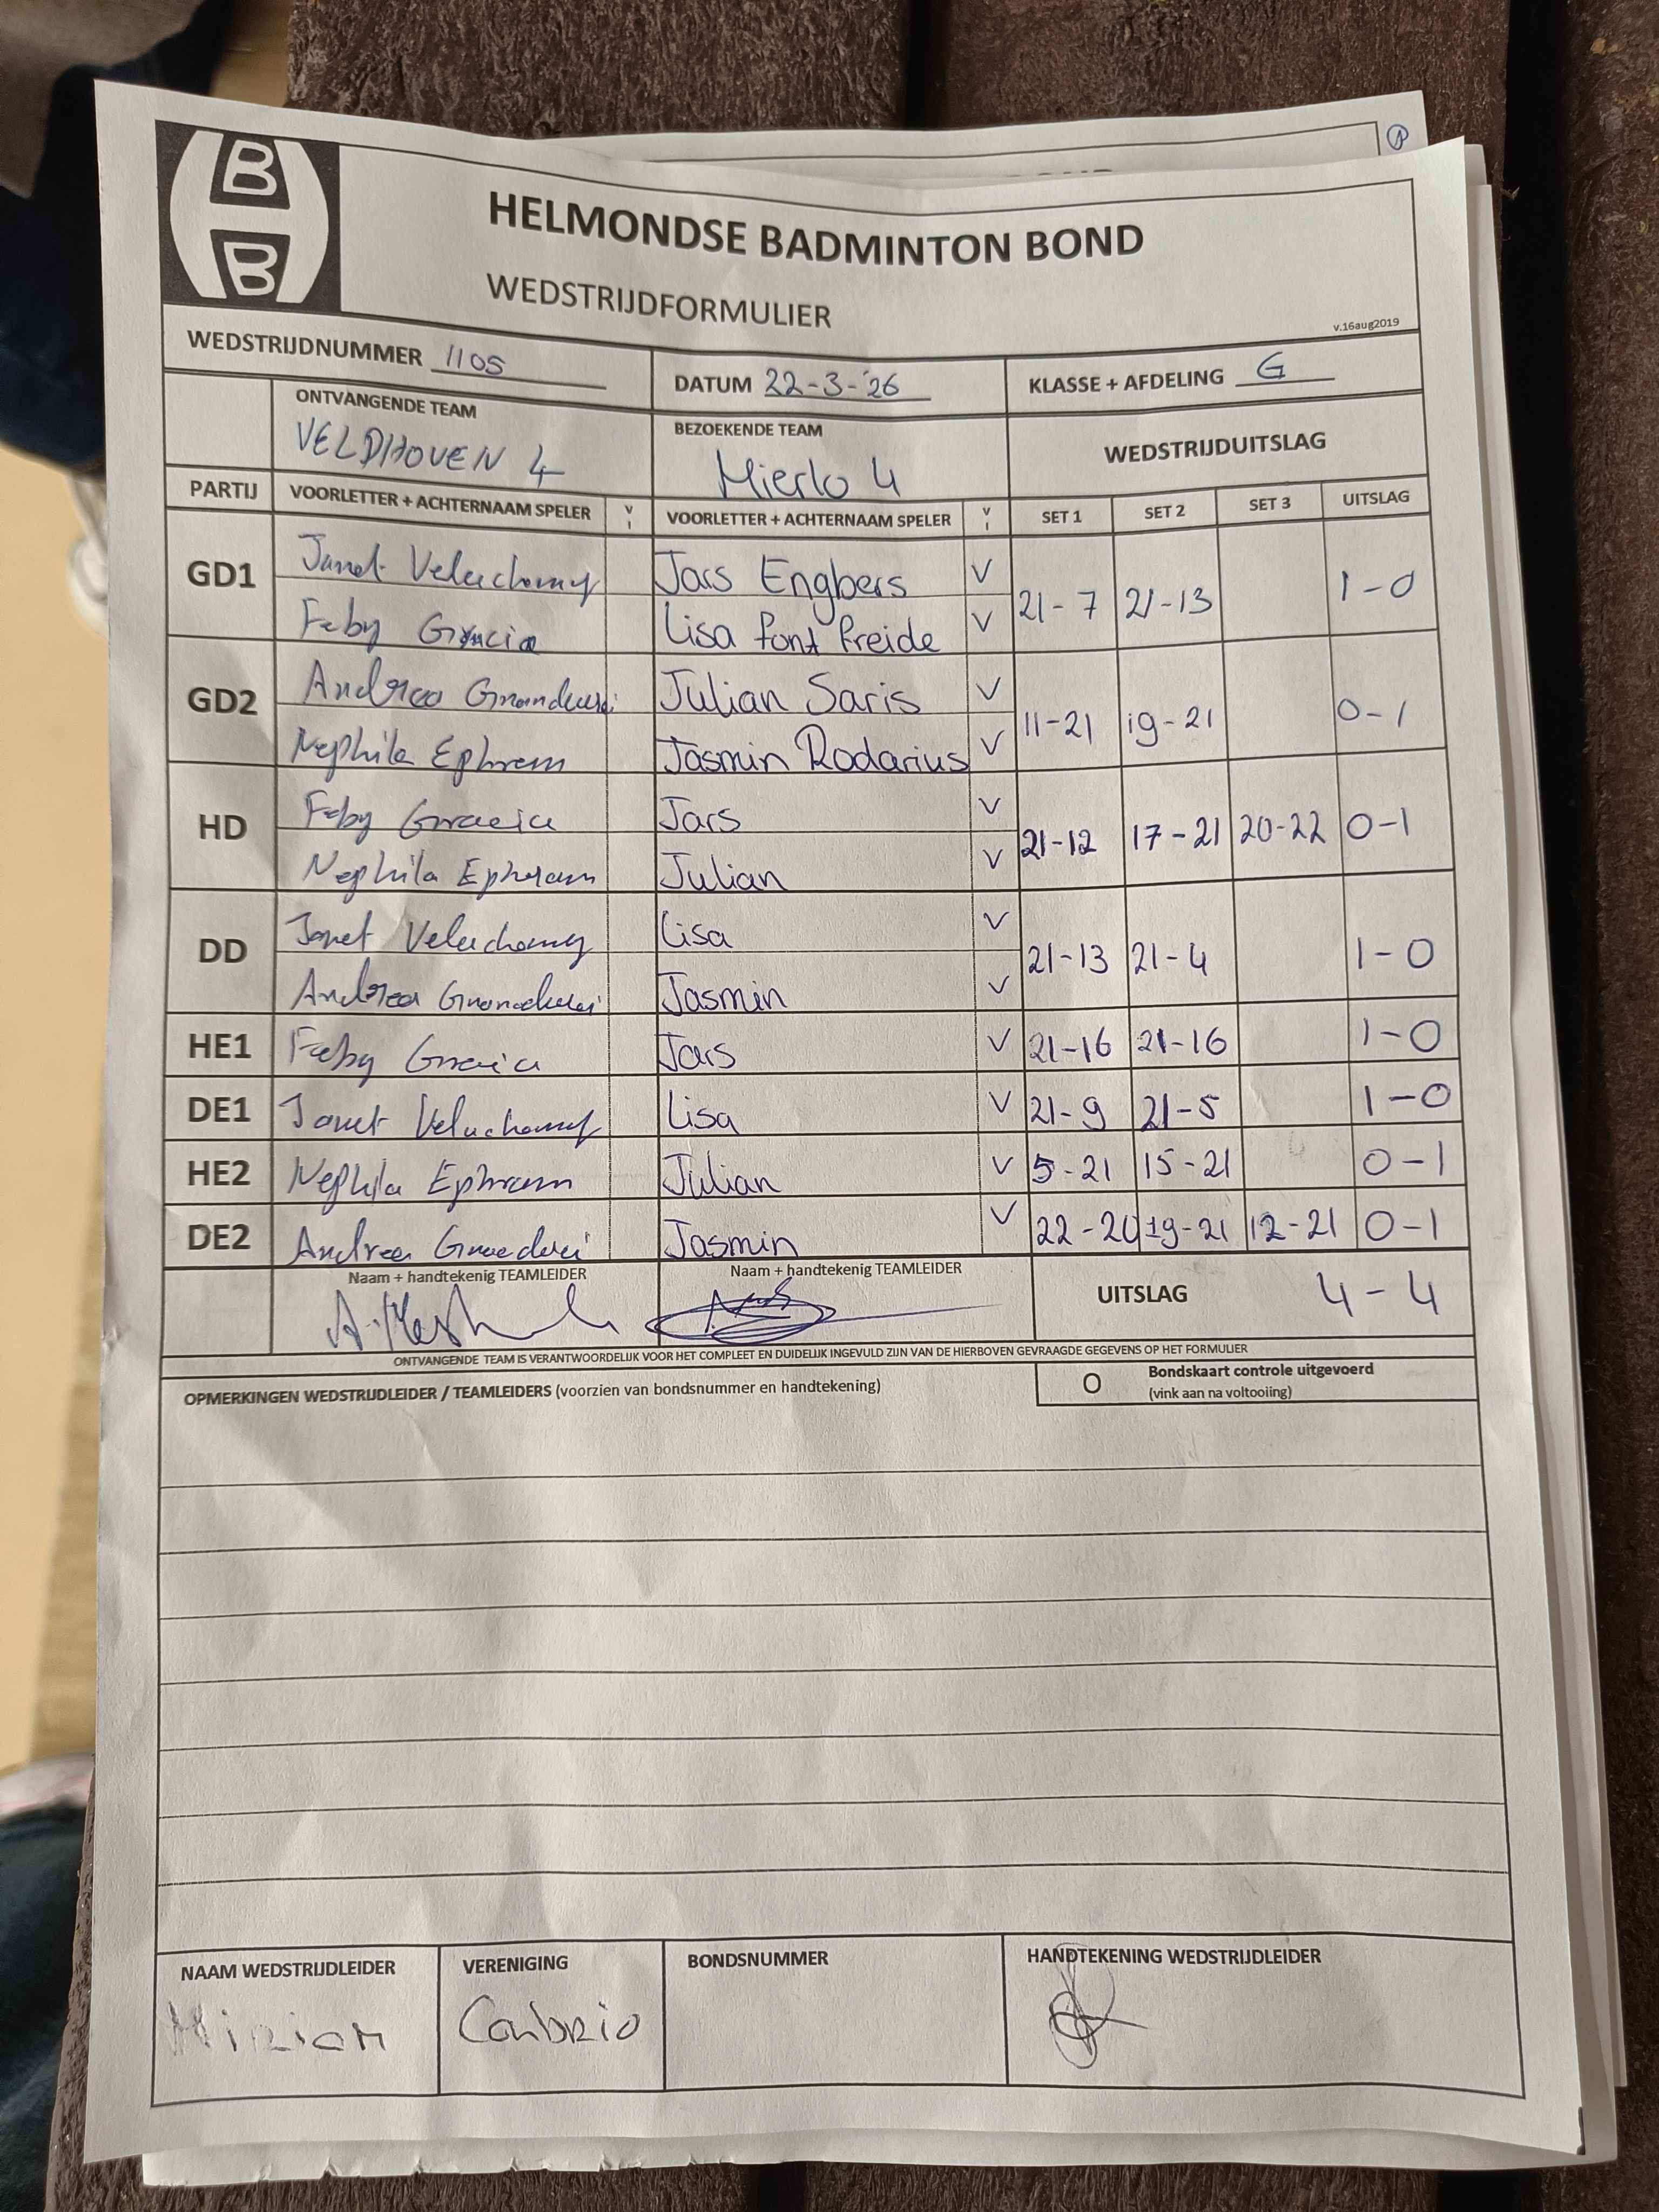 B
B
HELMONDSE BADMINTON BOND
WEDSTRIJDFORMULIER
v.16aug2019
WEDSTRIJDNUMMER 1105
DATUM 22-3-'26
KLASSE + AFDELING G
ONTVANGENDE TEAM
VELDHOVEN 4
BEZOEKENDE TEAM
Mierlo 4
WEDSTRIJDUITSLAG
PARTIJ VOORLETTER + ACHTERNAAM SPELER V I VOORLETTER + ACHTERNAAM SPELER V I SET 1 SET 2 SET 3 UITSLAG
GD1 Janet Veluchamy Jars Engbers V 21-7 21-13 1-0
Feby Gracia Lisa font freide V
GD2 Andrea Julian Saris V 11-21 19-21 0-1
Nephila Ephram Jasmin Rodarius V
HD Feby Gracia Jars V 21-12 17-21 20-22 0-1
Nephila Ephram Julian V
DD Janet Veluchamy Lisa V 21-13 21-4 1-0
Andrea Jasmin V
HE1 Feby Jars V 21-16 21-16 1-0
DE1 Janet Veluchamy Lisa V 21-9 21-5 1-0
HE2 Nephila Ephram Julian V 5-21 15-21 0-1
DE2 Andrea Jasmin V 22-20 19-21 12-21 0-1
Naam + handtekenig TEAMLEIDER
Naam + handtekenig TEAMLEIDER
UITSLAG 4-4
ONTVANGENDE TEAM IS VERANTWOORDELIJK VOOR HET COMPLEET EN DUIDELIJK INGEVULD ZIJN VAN DE HIERBOVEN GEVRAAGDE GEGEVENS OP HET FORMULIER
OPMERKINGEN WEDSTRIJDLEIDER / TEAMLEIDERS (voorzien van bondsnummer en handtekening)
O Bondskaart controle uitgevoerd
(vink aan na voltooiing)
NAAM WEDSTRIJDLEIDER VERENIGING BONDSNUMMER HANDTEKENING WEDSTRIJDLEIDER
Miriam Conbrio